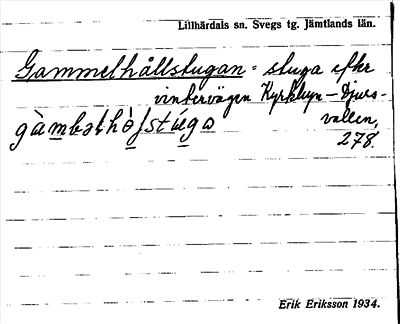 Lillhärdals sn. Svegs tg. Jämtlands län.
Gammelhållstugan = stuga efter
vintervägen Kyrkbyn – Djurs-
vallen,
278,
Erik Eriksson 1934.